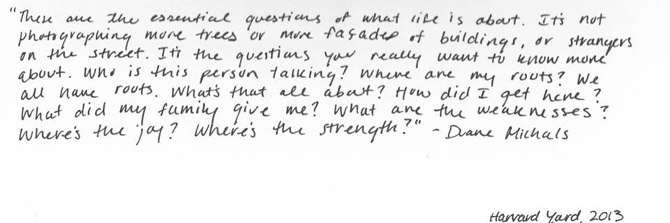 "These are the essential questions of what life is about. It's not
photographing more trees or more façades of buildings, or strangers
on the street. It's the questions you really want to know more
about. Who is this person talking? Where are my roots? We
all have roots. What's that all about? How did I get here?
What did my family give me? What are the weaknesses?
Where's the joy? Where's the strength?" - Duane Michals
Harvard Yard, 2013